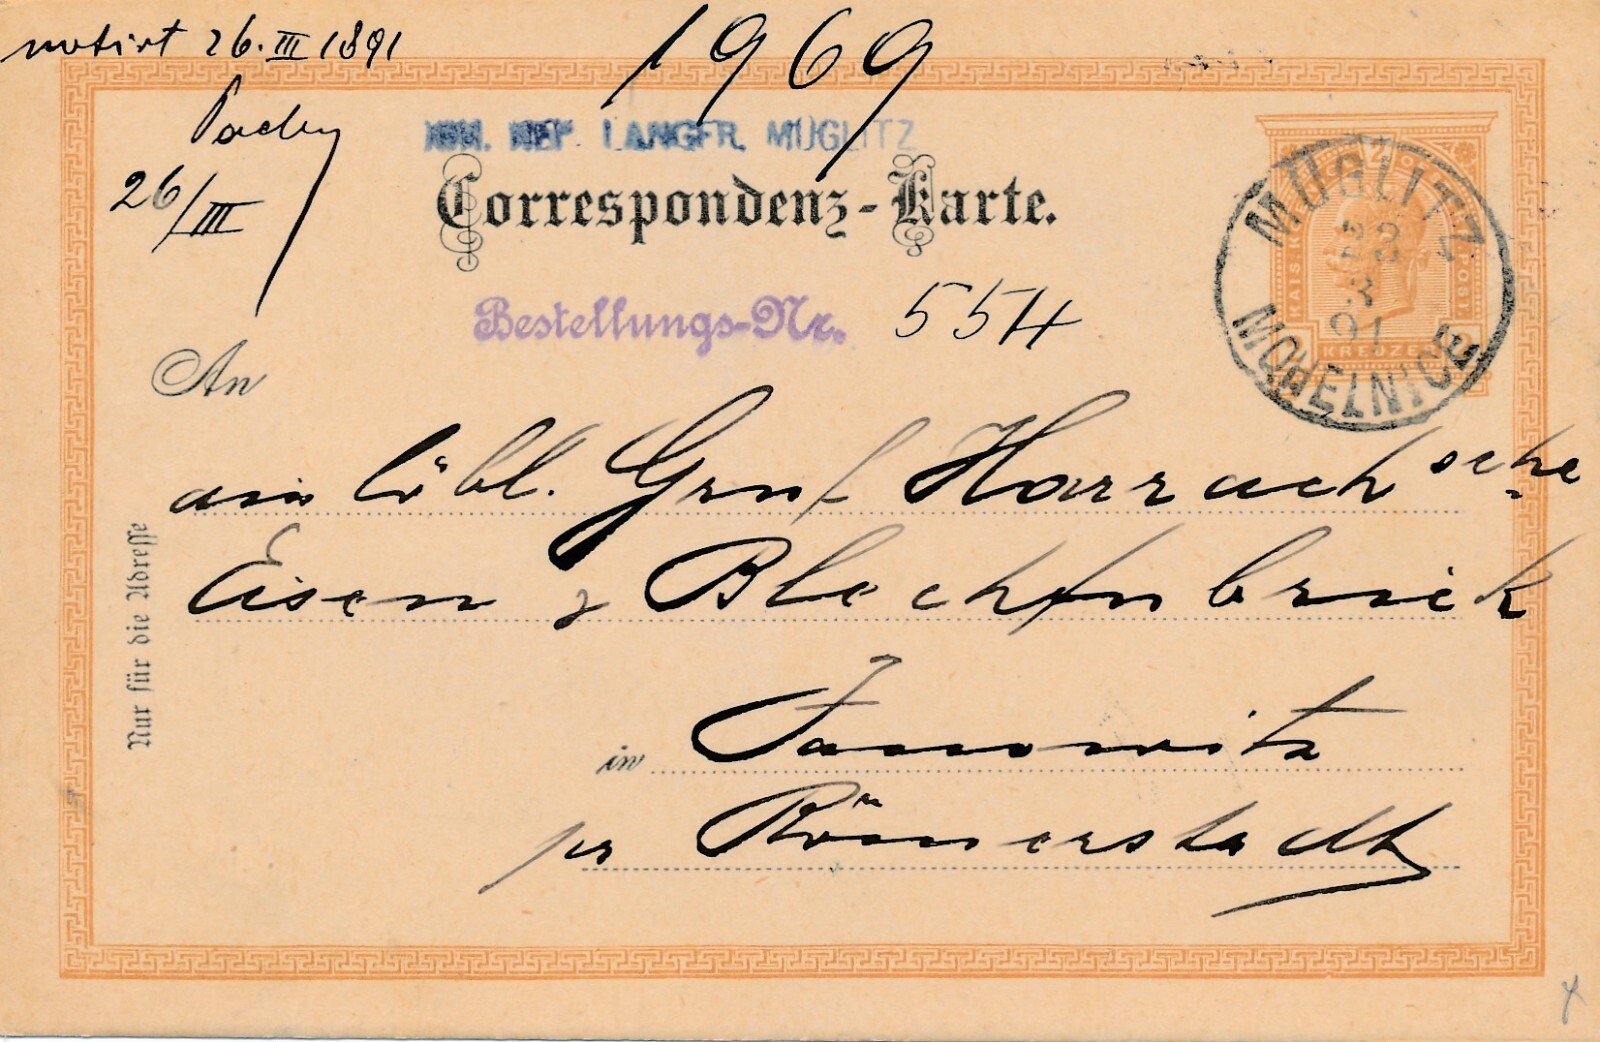 notirt 26. III 1891
1969
26/III
JOH. NEP. LANGER, MÜGLITZ
Correspondenz-Karte.
MÜGLITZ
91
MOHELNICE
KREUZER
Bestellungs-Nr. 554
An
löbl. Graf Harrach'sche
Eisen & Blechfabrik
Nur für die Adresse
in Janowitz
pr Römerstadt